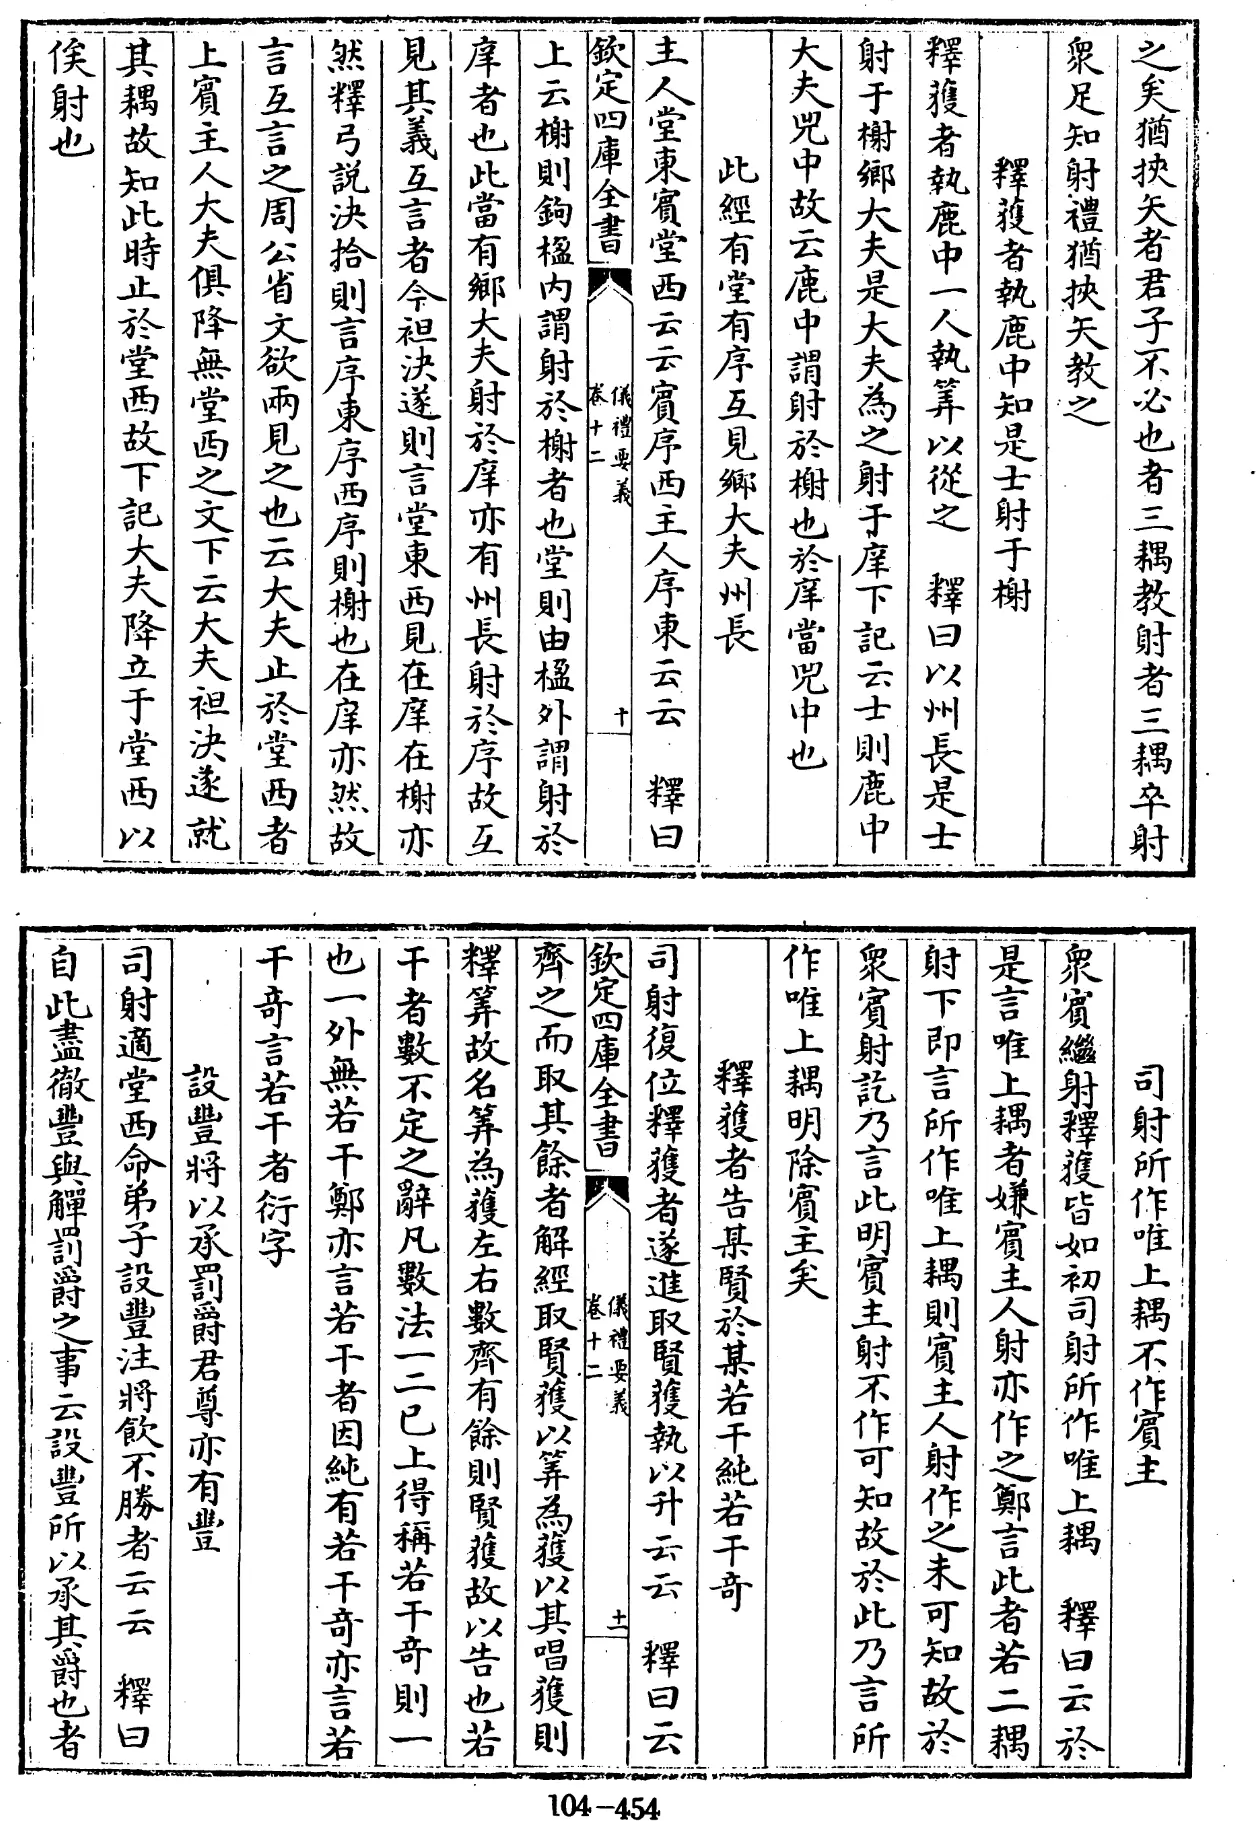 之矣猶挾矢者君子不必也者三耦教射者三耦卒射
衆足知射禮猶挾矢教之
釋獲者執鹿中知是士射于榭
釋獲者執鹿中一人執筭以從之　釋曰以州長是士
射于榭鄉大夫是大夫為之射于庠下記云士則鹿中
大夫兕中故云鹿中謂射於榭也於庠當兕中也
此經有堂有序互見鄉大夫州長
主人堂東賓堂西云云賓序西主人序東云云　釋曰
欽定四庫全書
儀禮要義
卷十二
十
上云榭則鉤楹内謂射於榭者也堂則由楹外謂射於
庠者也此當有鄉大夫射於庠亦有州長射於序故互
見其義互言者今袒決遂則言堂東西見在庠在榭亦
然釋弓説決拾則言序東序西序則榭也在庠亦然故
言互言之周公省文欲兩見之也云大夫止於堂西者
上賓主人大夫俱降無堂西之文下云大夫袒決遂就
其耦故知此時止於堂西故下記大夫降立于堂西以
俟射也
司射所作唯上耦不作賓主
衆賓繼射釋獲皆如初司射所作唯上耦　釋曰云於
是言唯上耦者嫌賓主人射亦作之鄭言此者若二耦
射下即言所作唯上耦則賓主人射作之未可知故於
衆賓射訖乃言此明賓主射不作可知故於此乃言所
作唯上耦明除賓主矣
釋獲者告某賢於某若干純若干奇
司射復位釋獲者遂進取賢獲執以升云云　釋曰云
欽定四庫全書
儀禮要義
卷十二
十一
齊之而取其餘者解經取賢獲以筭為獲以其唱獲則
釋筭故名筭為獲左右數齊有餘則賢獲故以告也若
干者數不定之辭凡數法一二已上得稱若干奇則一
也一外無若干鄭亦言若干者因純有若干奇亦言若
干奇言若干者衍字
設豐將以承罰爵君尊亦有豐
司射適堂西命弟子設豐注將飲不勝者云云　釋曰
自此盡徹豐與觶罰爵之事云設豐所以承其爵也者
104-454